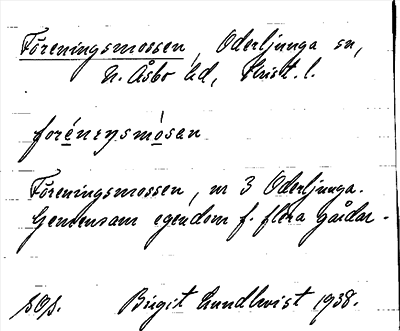 Föreningsmossen, Oderljunga sn,
N. Åsbo hd, Krist. l.
Föreningsmossen, nr 3 Oderljunga.
Gemensam egendom f. flera gårdar.
Birgit Lundkvist 1938.